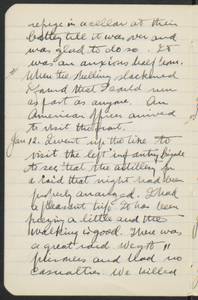 refuge in a cellar at their
battery till it was over and
was glad to do so. It
was an anxious half hour.
When the shelling slackened
I found that I could run
as fast as anyone. An
American officer arrived
to visit the front.
Jan 12. I went up the line to
visit the left infantry brigade
to see that the artillery for
a raid that night had been
properly arranged. I had
a pleasant trip. It has been
freezing a little and the
walking is good. There was
a great raid. We got 11
prisoners and had no
casualties. We killed